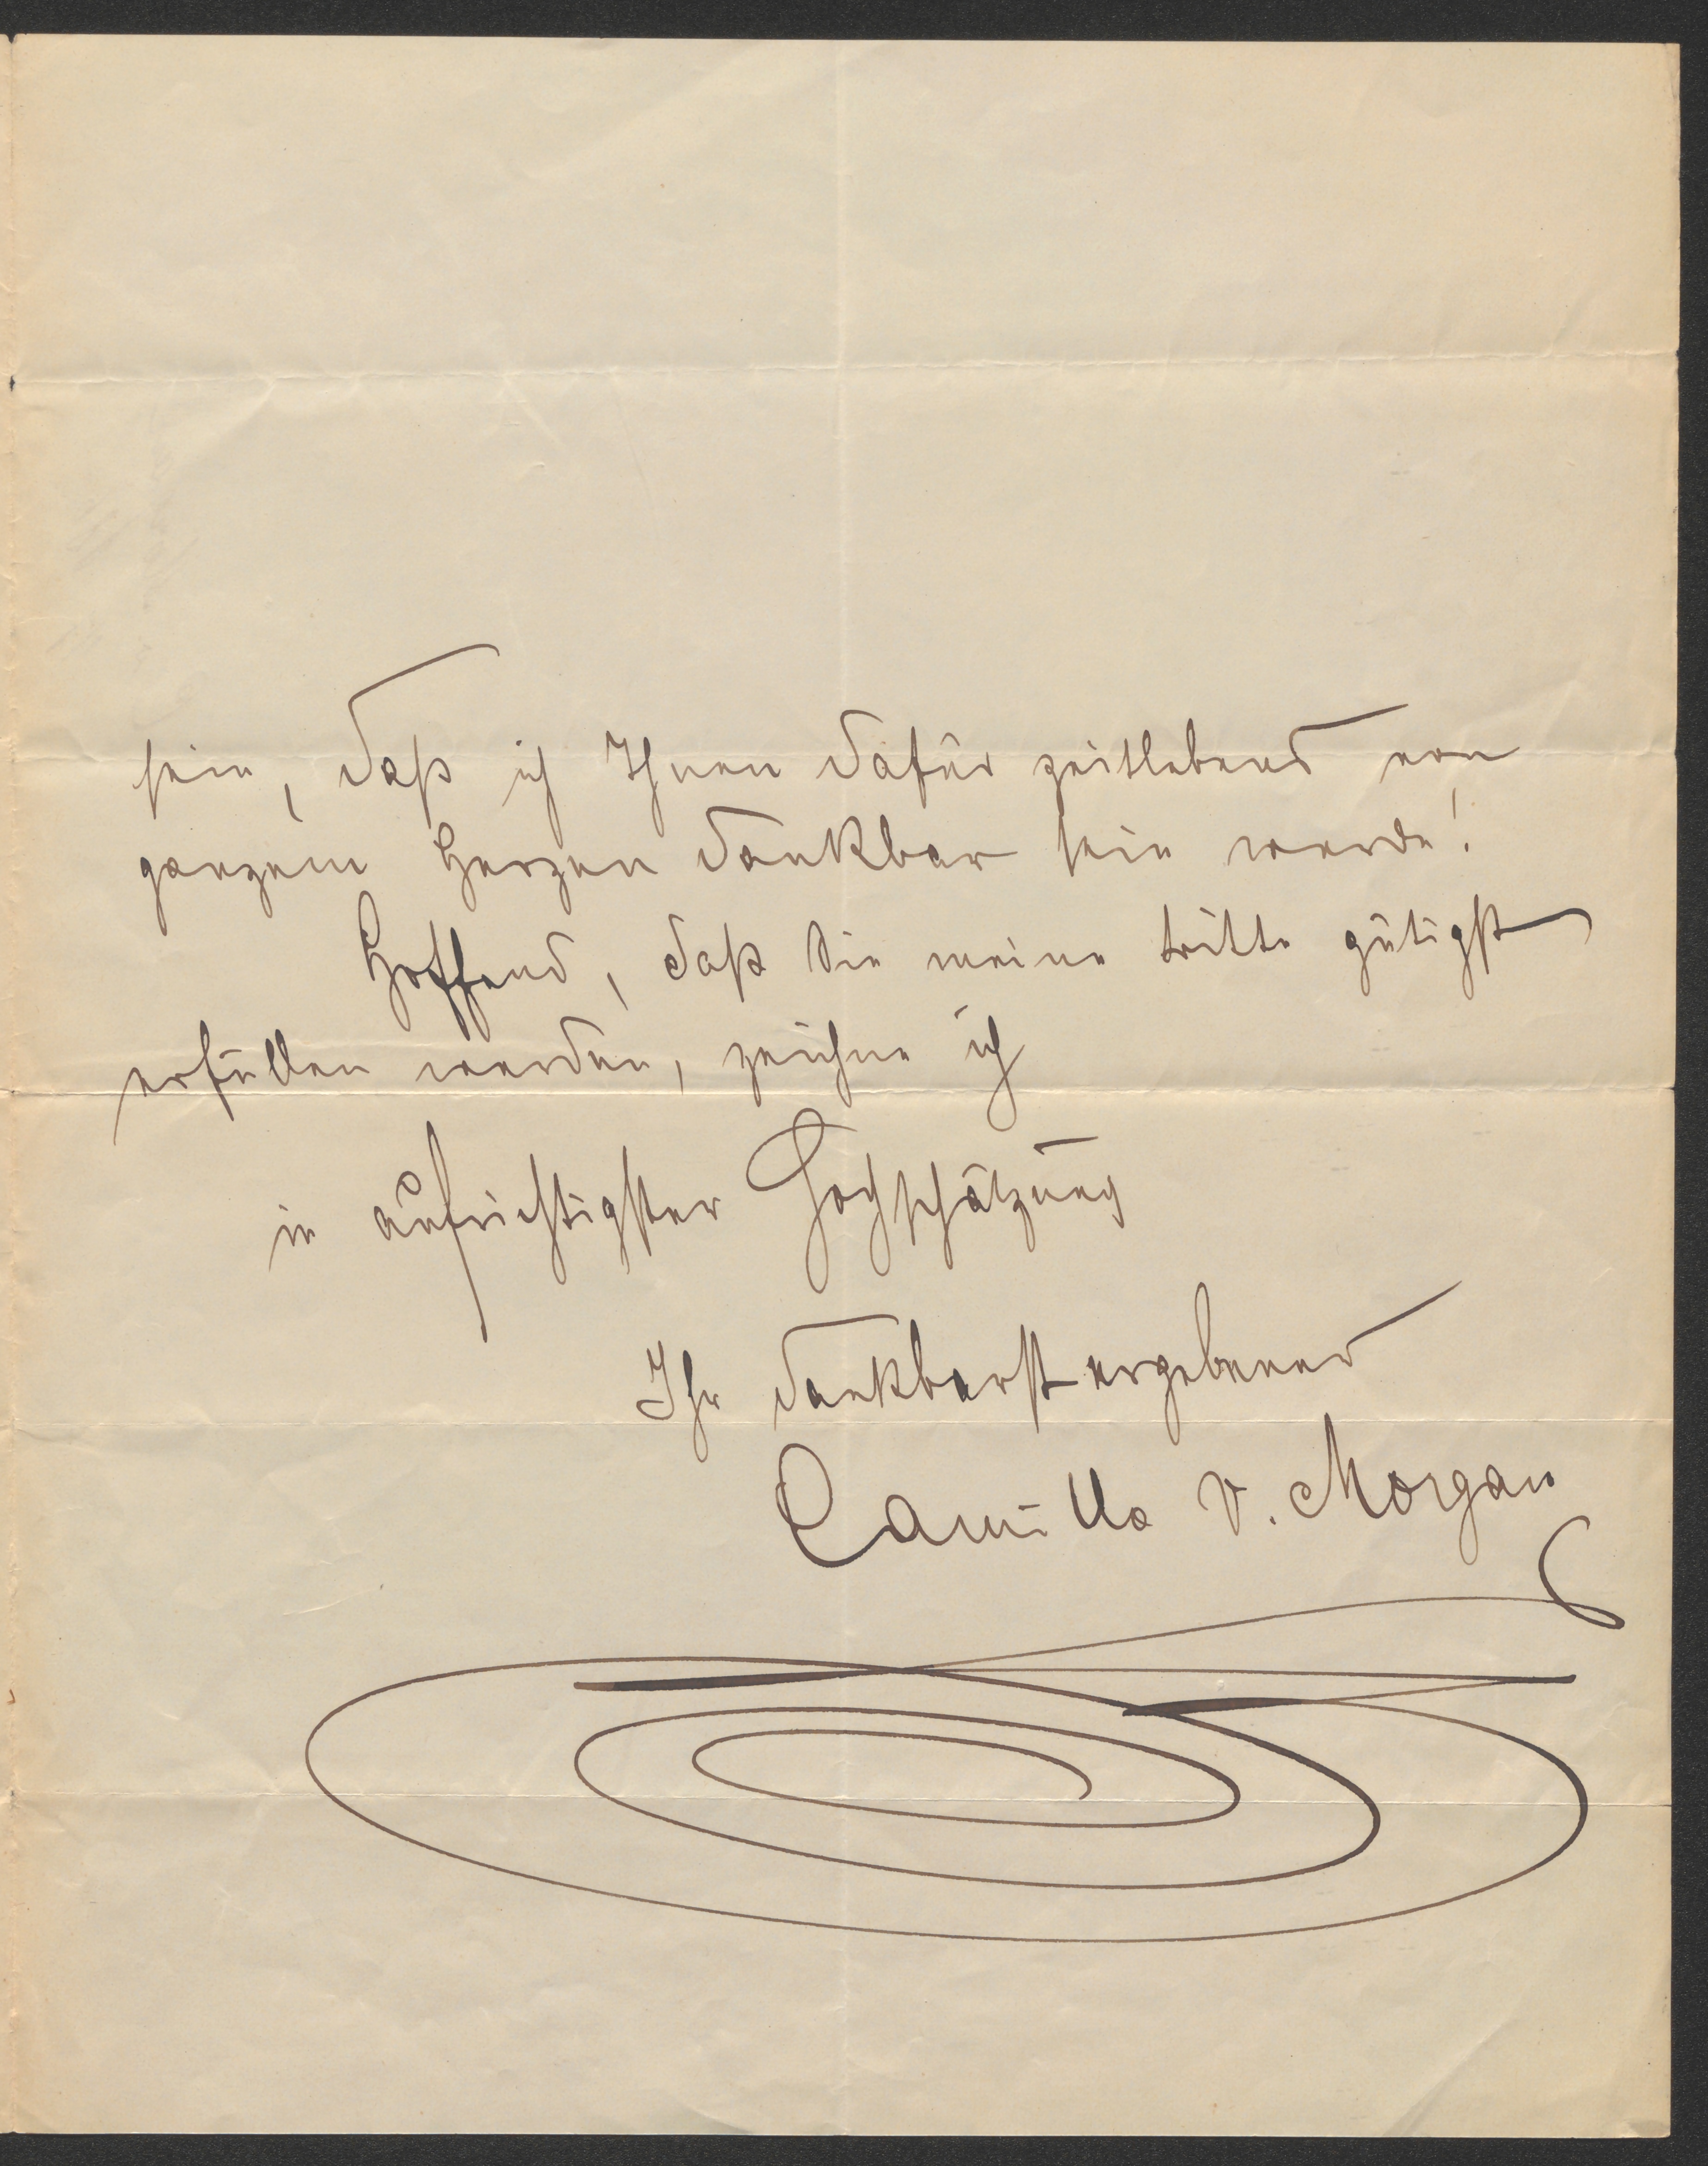 sein, daß ich Ihnen dafür zeitlebens von
ganzem Herzen dankbar sein werde!
Hoffend, daß Sie meine Bitte gütigst
erfüllen werden, zeichne ich
in aufrichtigster Hochschätzung
Ihr dankbarst ergebener
Camillo V. Morgan